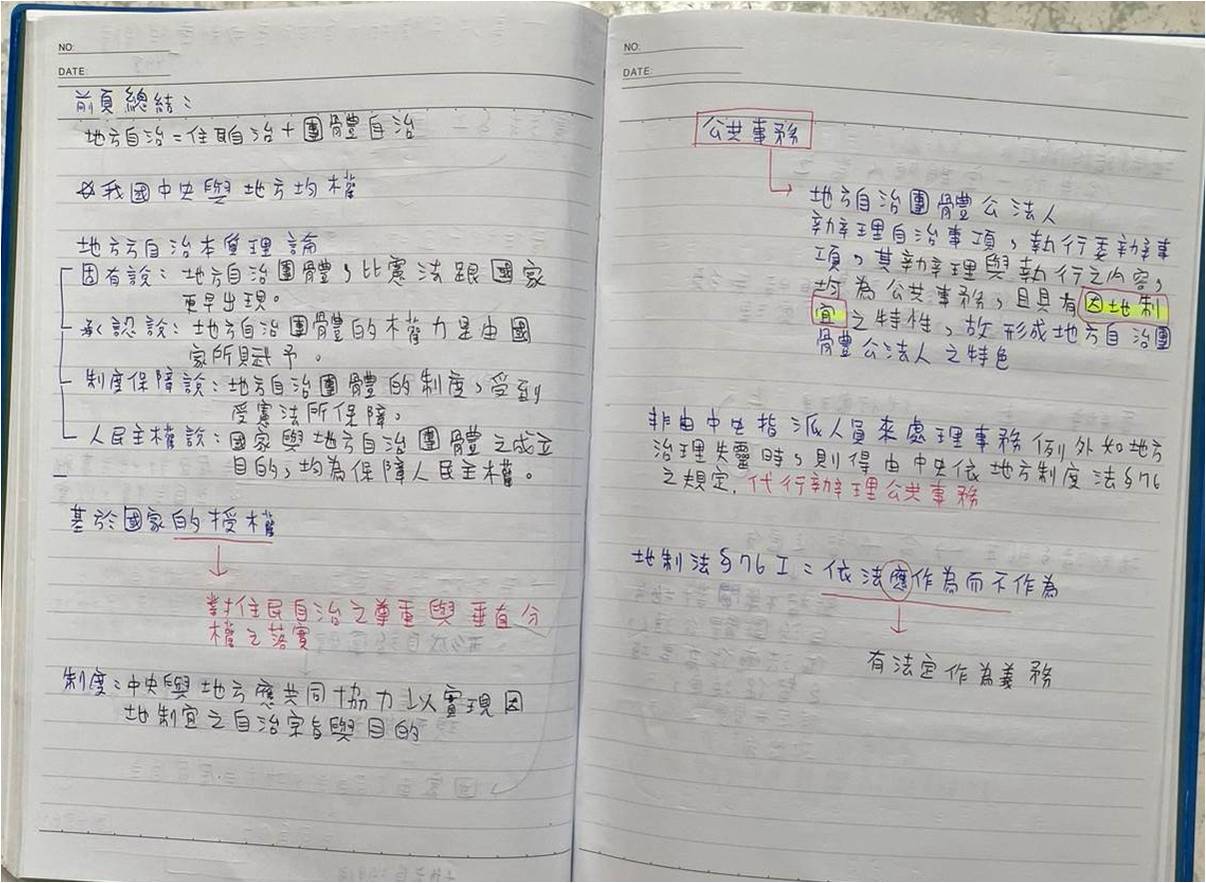 NO:
DATE:
前頁總結：
地方自治=住民自治+團體自治
我國中央與地方均權
地方自治本質理論
固有說：地方自治團體，比憲法跟國家
更早出現。
承認說：地方自治團體的權力是由國
家所賦予。
制度保障說：地方自治團體的制度，受到
受憲法所保障，
人民主權說：國家與地方自治團體之成立
目的，均為保障人民主權。
基於國家的授權
對住民自治之尊重與垂直分
權之落實
制度：中央與地方應共同協力以實現因
地制宜之自治宗旨與目的
NO:
DATE:
公共事務
地方自治團體公法人
辦理自治事項，執行委辦事
項，其辦理與執行之內容，
均為公共事務，且具有因地制
宜之特性，故形成地方自治團
體公法人之特色
非由中央指派人員來處理事務例外如地方
治理失靈時，則得由中央依地方制度法§76
之規定，代行辦理公共事務
地制法§76 I：依法應作為而不作為
有法定作為義務